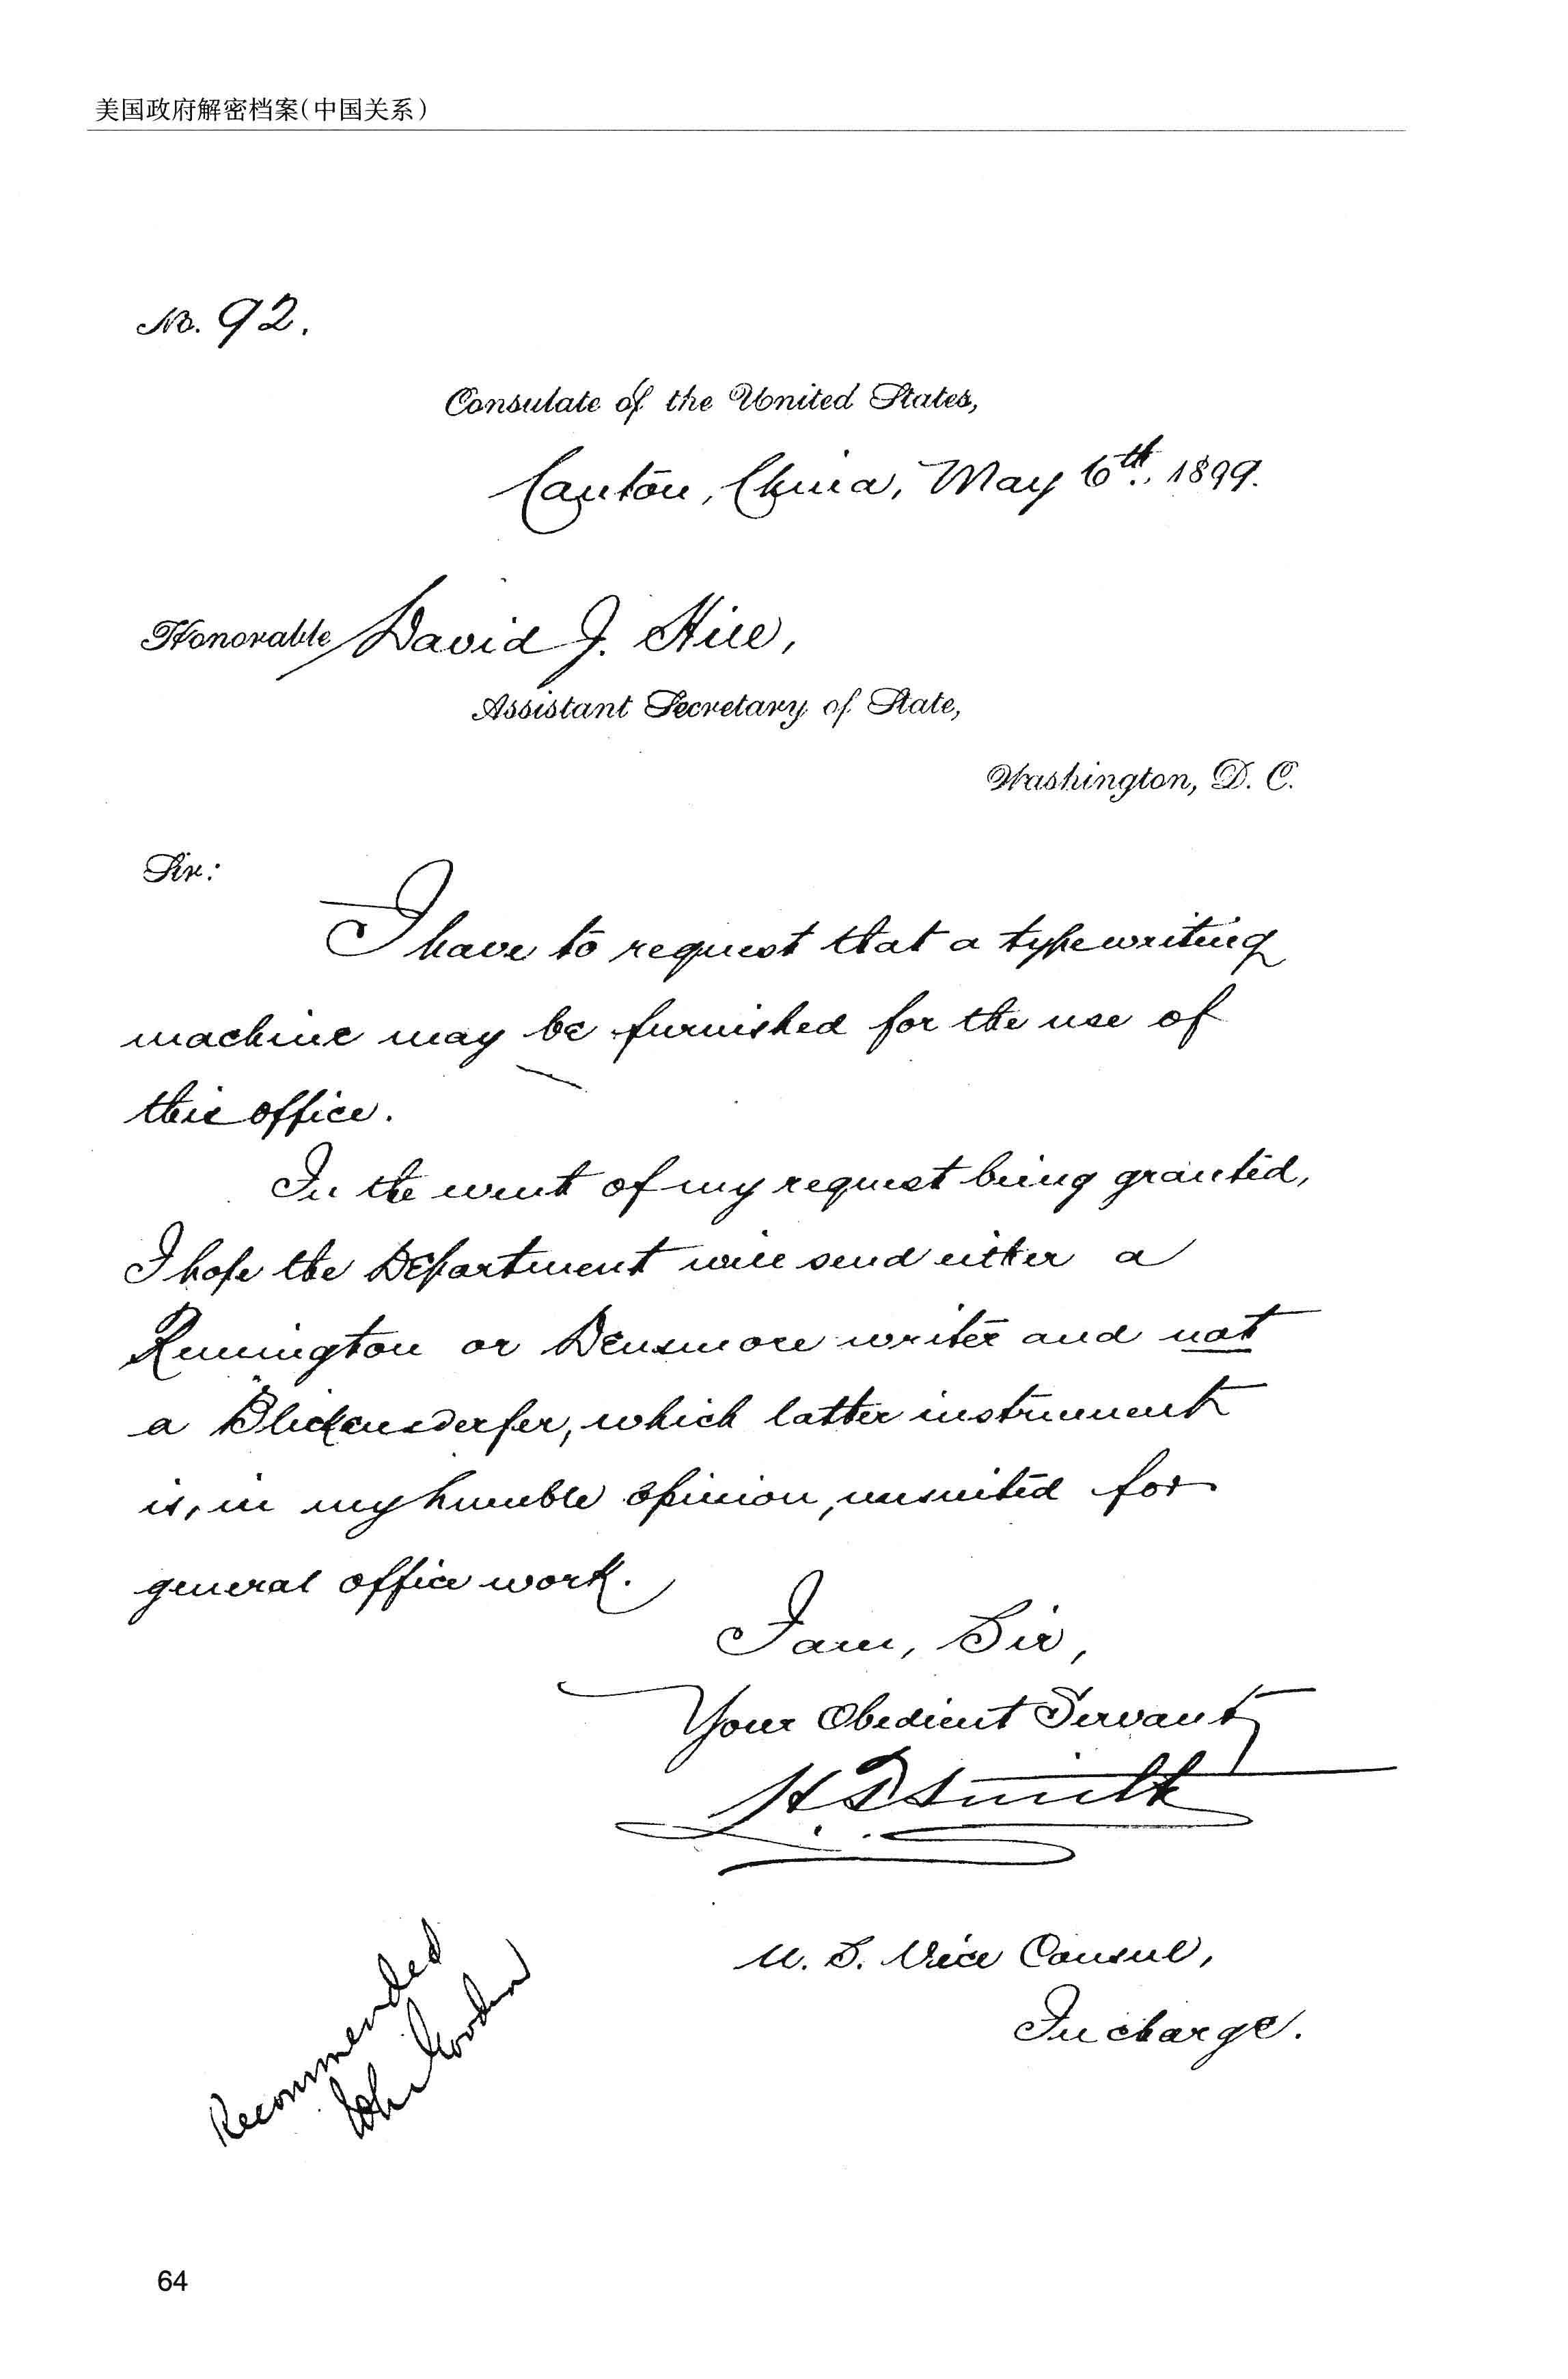 美国政府解密档案(中国关系)
No. 92.
Consulate of the United States,
Canton, China, May 6th., 1899.
Honorable David J. Hill,
Assistant Secretary of State,
Washington, D. C.
Sir:
I have to request that a typewriting
machine may be furnished for the use of
this office.
In the event of my request being granted,
I hope the Department will send either a
Remington or Densmore writer and not
a Blickensderfer, which latter instrument
is, in my humble opinion, unsuited for
general office work.
I am, Sir,
Your Obedient Servant
H. D. Smith
U. S. Vice Consul,
In charge.
Recommended
John
64